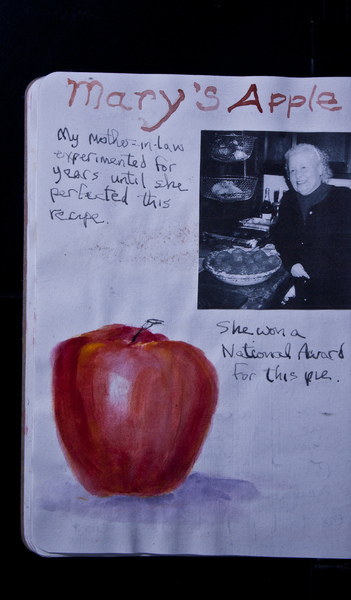 Mary's Apple
My mother-in-law
experimented for
years until she
perfected this
recipe.
She won a
National Award
for this pie.